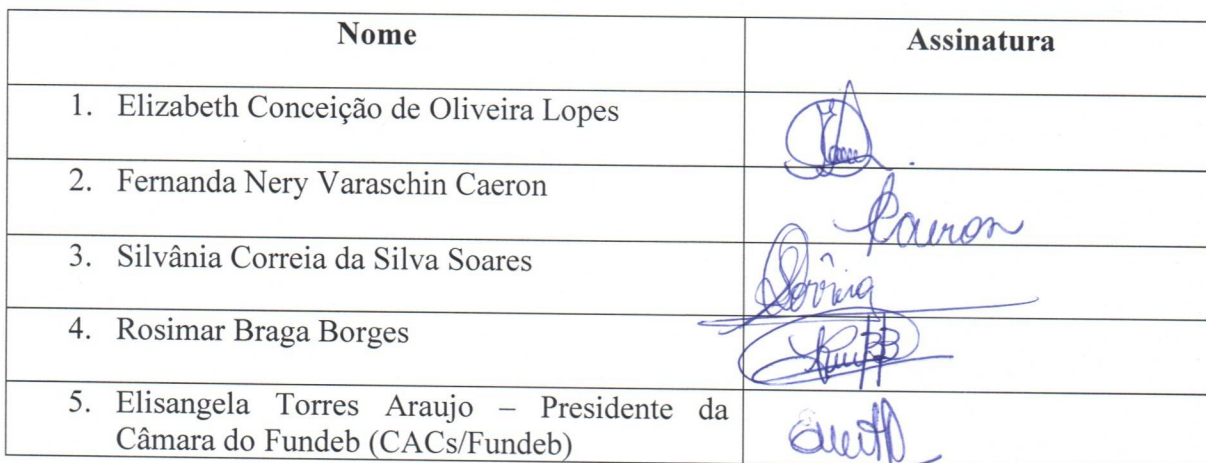 Nome Assinatura
1. Elizabeth Conceição de Oliveira Lopes
2. Fernanda Nery Varaschin Caeron
Caeron
3. Silvânia Correia da Silva Soares
4. Rosimar Braga Borges
5. Elisangela Torres Araujo – Presidente da
Câmara do Fundeb (CACs/Fundeb)